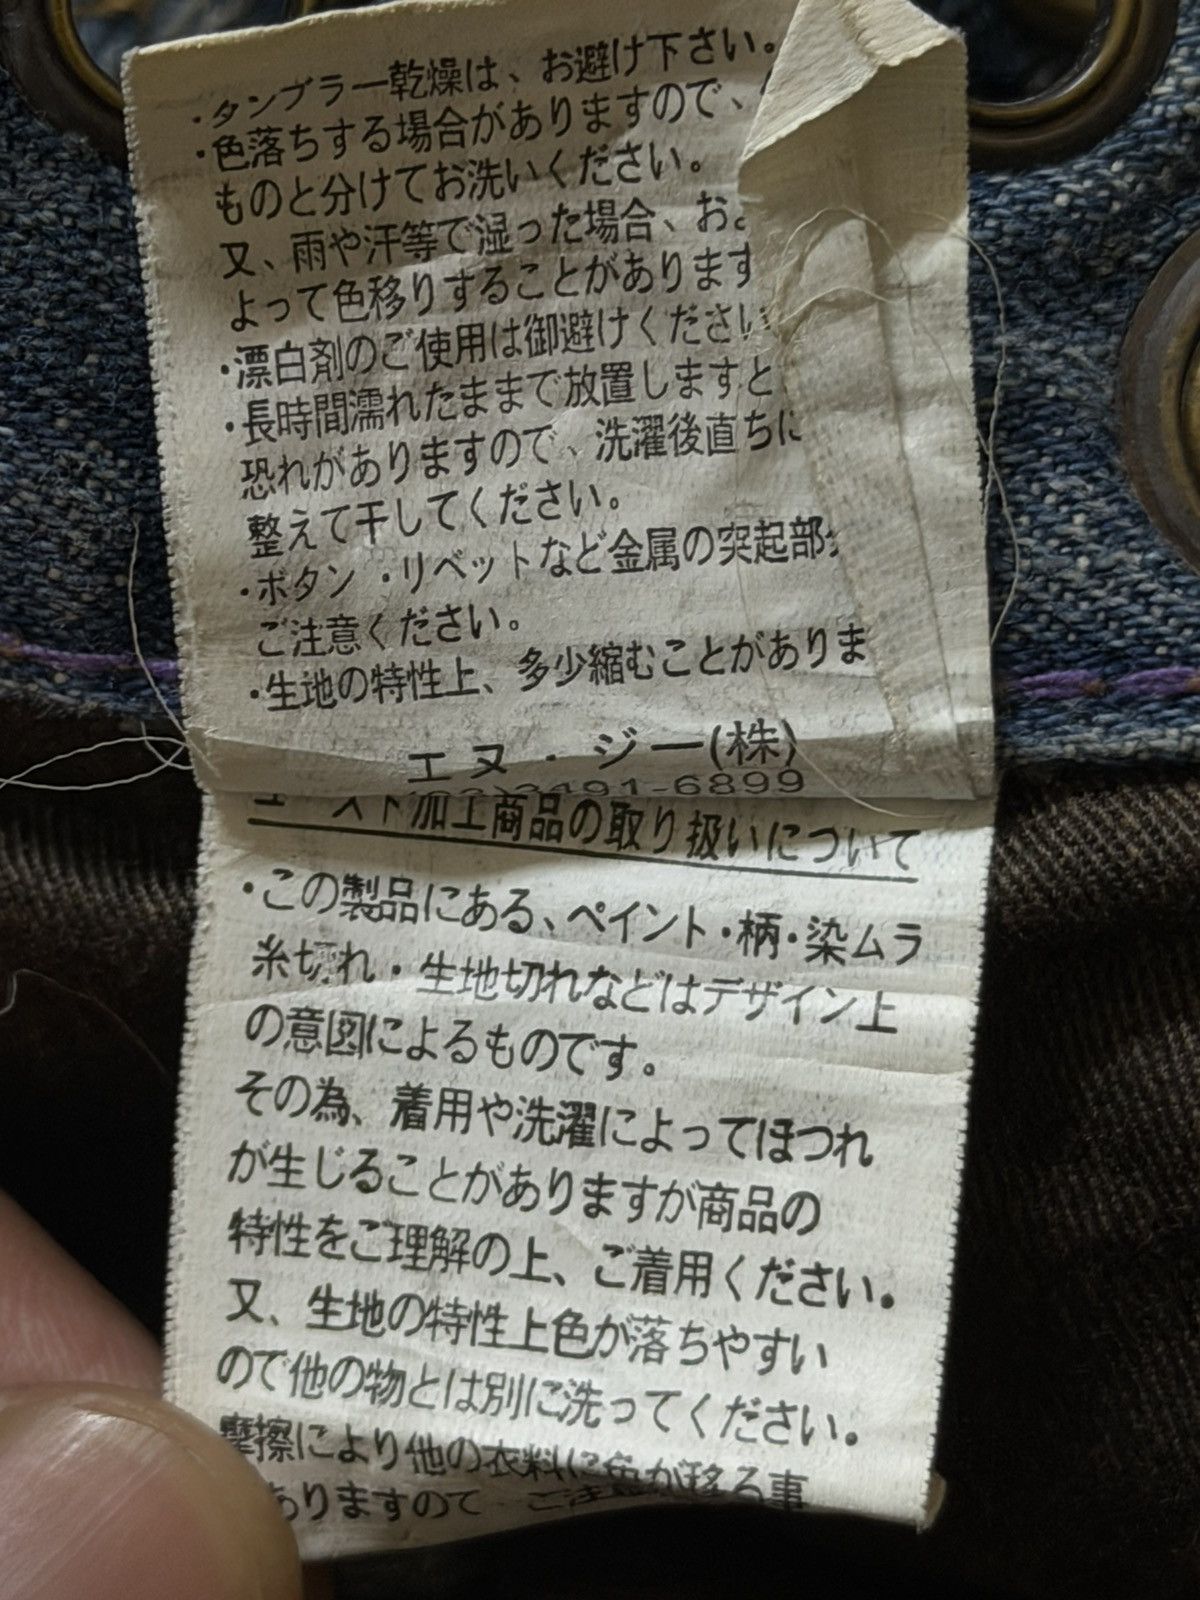 ・タンブラー乾燥は、お避け下さい。
・色落ちする場合がありますので、
ものと分けてお洗いください。
又、雨や汗等で湿った場合、およ
よって色移りすることがあります
・漂白剤のご使用は御避けください
・長時間濡れたままで放置しますと
恐れがありますので、洗濯後直ちに
整えて干してください。
・ボタン・リベットなど金属の突起部
ご注意ください。
・生地の特性上、多少縮むことがありま
エヌ・ジー(株)
3491-6899
加工商品の取り扱いについて
・この製品にある、ペイント・柄・染ムラ
糸切れ・生地切れなどはデザイン上
の意図によるものです。
その為、着用や洗濯によってほつれ
が生じることがありますが商品の
特性をご理解の上、ご着用ください。
又、生地の特性上色が落ちやすい
ので他の物とは別に洗ってください。
摩擦により他の衣料に色が移る事
ありますので